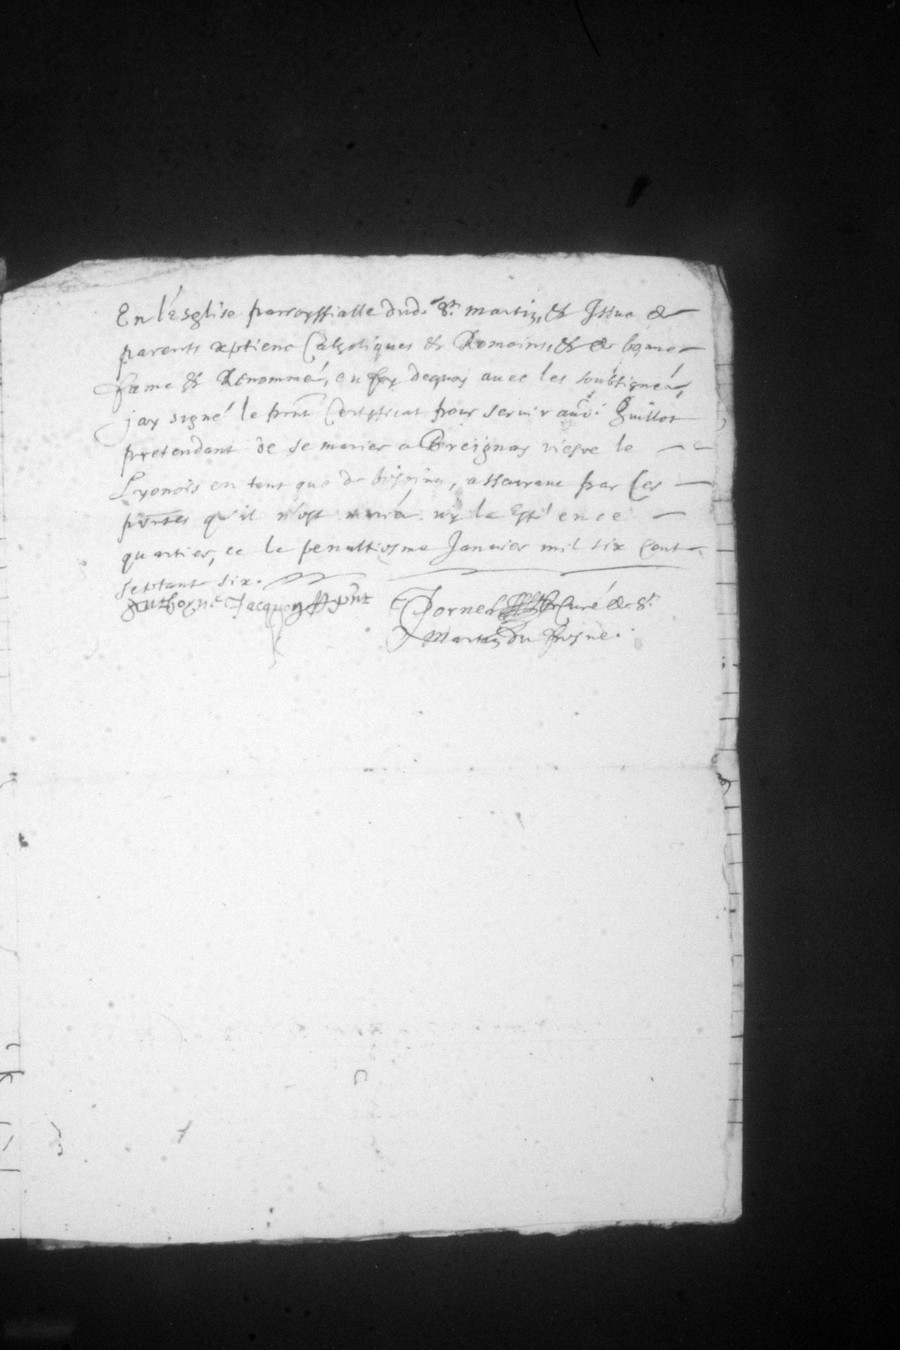 En l'esglise parroyssialle dud. St. martin, & Issue de
parents xptiens Catholiques & Romains, & de bonne
fame & Renommé, en foy dequoy avec les soubsignés,
jay signé le pnt Certificat pour servir aud. Guillot
pretendant de se marier a Breignay viesre le
Lyonois en tant que de besoing, asseurant par Ces
pntes qu'il n'est marié ny la esté en ce
quartier, ce le penultiesme Janvier mil six Cent
septant six.
Anthoyne Jacquon pnt
Curé de St.
Martin du fresne.